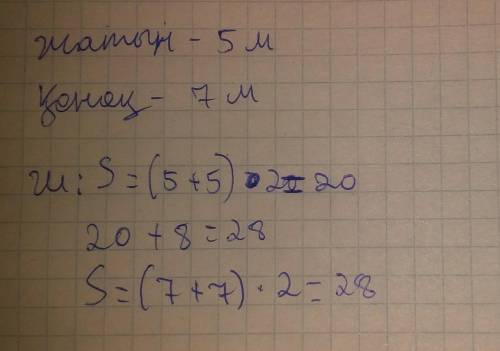 жатын - 5 м
қонақ - 7 м
Ш: S = (5 + 5) • 2 = 20
20 + 8 = 28
S = (7 + 7) · 2 = 28